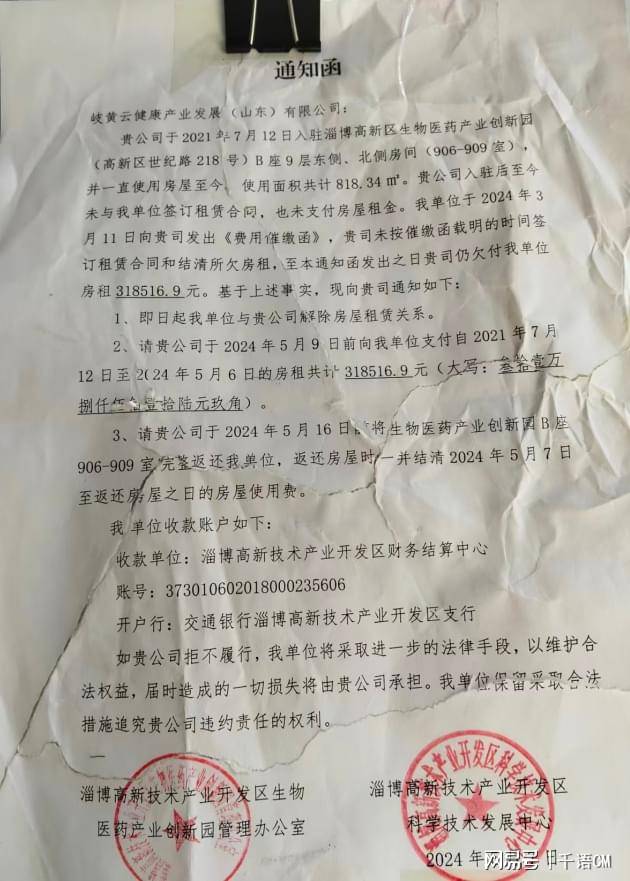 通知函
岐黄云健康产业发展（山东）有限公司：
贵公司于2021年7月12日入驻淄博高新区生物医药产业创新园
（高新区世纪路218号）B座9层东侧、北侧房间（906-909室），
并一直使用房屋至今，使用面积共计818.34㎡。贵公司入驻后至今
未与我单位签订租赁合同，也未支付房屋租金。我单位于2024年3
月11日向贵司发出《费用催缴函》，贵司未按催缴函载明的时间签
订租赁合同和结清所欠房租，至本通知函发出之日贵司仍欠付我单位
房租318516.9元。基于上述事实，现向贵司通知如下：
1、即日起我单位与贵公司解除房屋租赁关系。
2、请贵公司于2024年5月9日前向我单位支付自2021年7月
12日至2024年5月6日的房租共计318516.9元（大写：叁拾壹万
捌仟伍佰壹拾陆元玖角）。
3、请贵公司于2024年5月16日前将生物医药产业创新园B座
906-909室完整返还我单位，返还房屋时一并结清2024年5月7日
至返还房屋之日的房屋使用费。
我单位收款账户如下：
收款单位：淄博高新技术产业开发区财务结算中心
账号：373010602018000235606
开户行：交通银行淄博高新技术产业开发区支行
如贵公司拒不履行，我单位将采取进一步的法律手段，以维护合
法权益，届时造成的一切损失将由贵公司承担。我单位保留采取合法
措施追究贵公司违约责任的权利。
淄博高新技术产业开发区生物
医药产业创新园管理办公室
淄博高新技术产业开发区
科学技术发展中心
2024年 日
网易号|千语CM